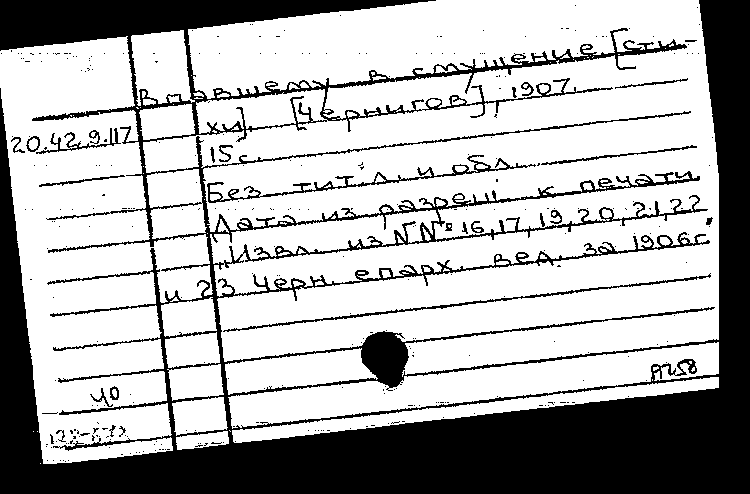 Впавшему в смущение. [Сти-
20.42.9.117 хи]. [Чернигов], 1907.
15 с.
Без тит. л. и обл.
Дата из разреш. к печати
„Извл. из №№ 16, 17, 19, 20, 21, 22
и 23 Черн. епарх. вед. за 1906 г."
ЧО
А258